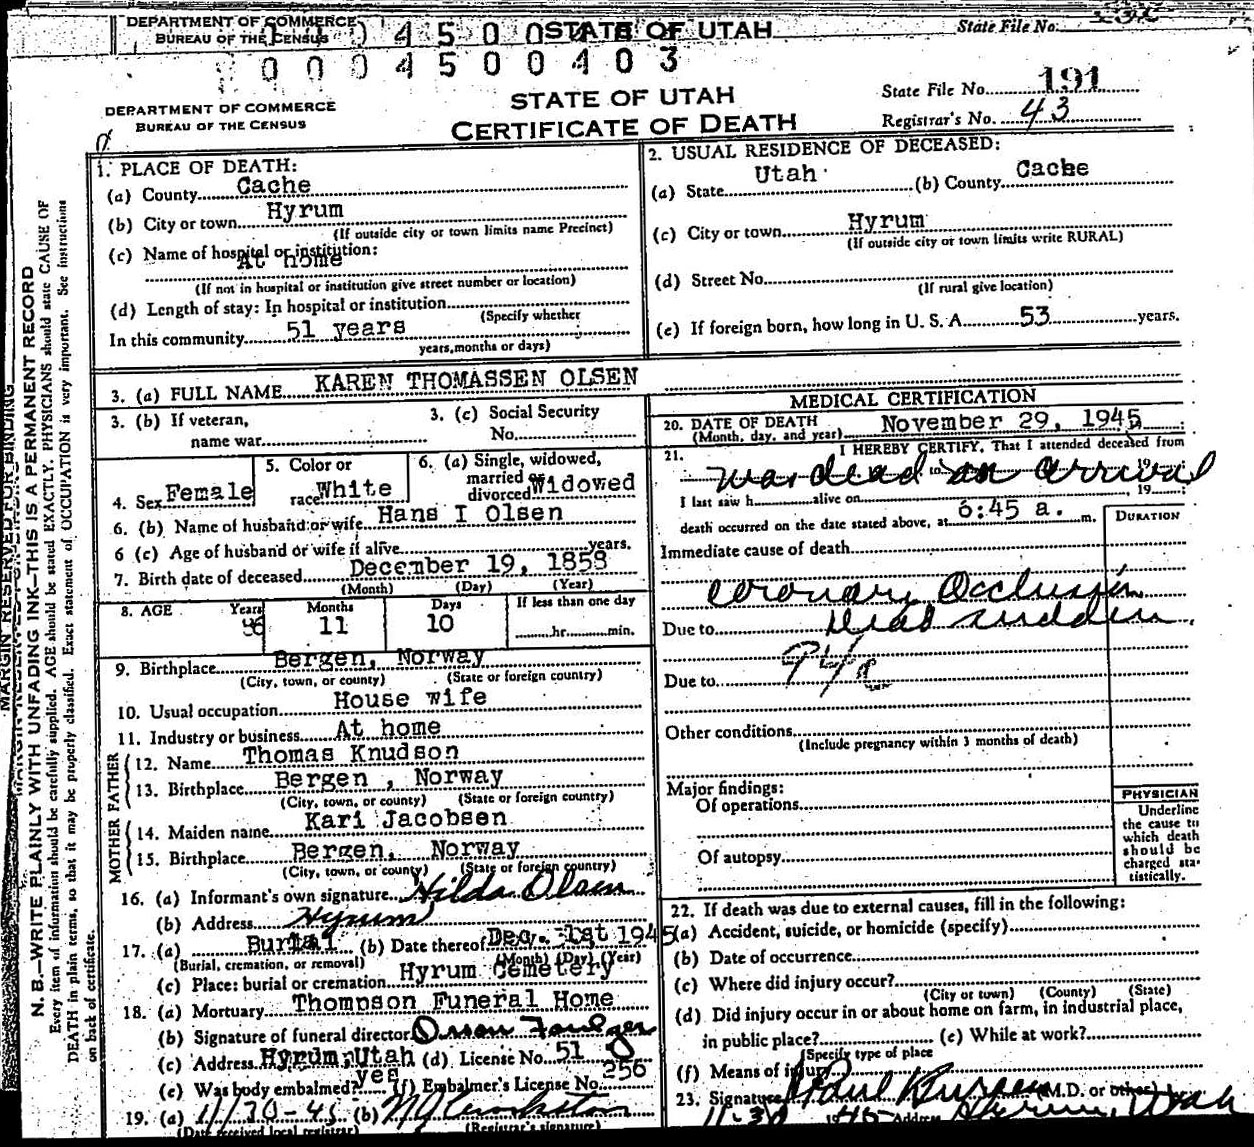 DEPARTMENT OF COMMERCE
BUREAU OF THE CENSUS
STATE OF UTAH
State File No.
0 0 0 4 5 0 0 4 0 3
DEPARTMENT OF COMMERCE
BUREAU OF THE CENSUS
STATE OF UTAH
CERTIFICATE OF DEATH
State File No. 191
Registrar's No. 43
MARGIN RESERVED FOR BINDING
N. B.—WRITE PLAINLY WITH UNFADING INK—THIS IS A PERMANENT RECORD
Every item of information should be carefully supplied. AGE should be stated EXACTLY. PHYSICIANS should state CAUSE OF
DEATH in plain terms, so that it may be properly classified. Exact statement of OCCUPATION is very important. See instructions
on back of certificate.
1. PLACE OF DEATH:
(a) County Cache
(b) City or town Hyrum
(If outside city or town limits name Precinct)
(c) Name of hospital or institution:
At home
(If not in hospital or institution give street number or location)
(d) Length of stay: In hospital or institution
(Specify whether
In this community 51 years
years, months or days)
2. USUAL RESIDENCE OF DECEASED:
(a) State Utah (b) County Cache
(c) City or town Hyrum
(If outside city or town limits write RURAL)
(d) Street No.
(If rural give location)
(e) If foreign born, how long in U. S. A. 53 years.
3. (a) FULL NAME KAREN THOMASSEN OLSEN
3. (b) If veteran,
name war
3. (c) Social Security
No.
4. Sex Female
5. Color or
race White
6. (a) Single, widowed,
married or
divorced Widowed
6. (b) Name of husband or wife Hans I Olsen
6 (c) Age of husband or wife if alive years.
7. Birth date of deceased December 19, 1858
(Month) (Day) (Year)
8. AGE Years Months Days If less than one day
86 11 10 hr. min.
9. Birthplace Bergen, Norway
(City, town, or county) (State or foreign country)
10. Usual occupation House wife
11. Industry or business At home
FATHER
12. Name Thomas Knudson
13. Birthplace Bergen , Norway
(City, town, or county) (State or foreign country)
MOTHER
14. Maiden name Kari Jacobsen
15. Birthplace Bergen, Norway
(City, town, or county) (State or foreign country)
16. (a) Informant's own signature Hilda Olsen
(b) Address Hyrum
17. (a) Burial (b) Date thereof Dec. 1st 1945
(Burial, cremation, or removal) (Month) (Day) (Year)
(c) Place: burial or cremation Hyrum Cemetery
18. (a) Mortuary Thompson Funeral Home
(b) Signature of funeral director
(c) Address Hyrum, Utah (d) License No. 51
(e) Was body embalmed? yes (f) Embalmer's License No. 256
19. (a) 11/30-45 (b)
(Date received local registrar) (Registrar's signature)
MEDICAL CERTIFICATION
20. DATE OF DEATH
(Month, day, and year) November 29, 1945
21. I HEREBY CERTIFY, That I attended deceased from
was dead on arrival
I last saw h alive on , 19
death occurred on the date stated above, at 6:45 a. m.
DURATION
Immediate cause of death
Coronary Occlusion
Due to Died sudden
94a
Due to
Other conditions
(Include pregnancy within 3 months of death)
Major findings:
Of operations
Of autopsy
PHYSICIAN
Underline
the cause to
which death
should be
charged sta-
tistically.
22. If death was due to external causes, fill in the following:
(a) Accident, suicide, or homicide (specify)
(b) Date of occurrence
(c) Where did injury occur?
(City or town) (County) (State)
(d) Did injury occur in or about home on farm, in industrial place,
in public place? (e) While at work?
(Specify type of place
(f) Means of injury
23. Signature Paul (M.D. or other)
11-30 1945 Address Hyrum, Utah